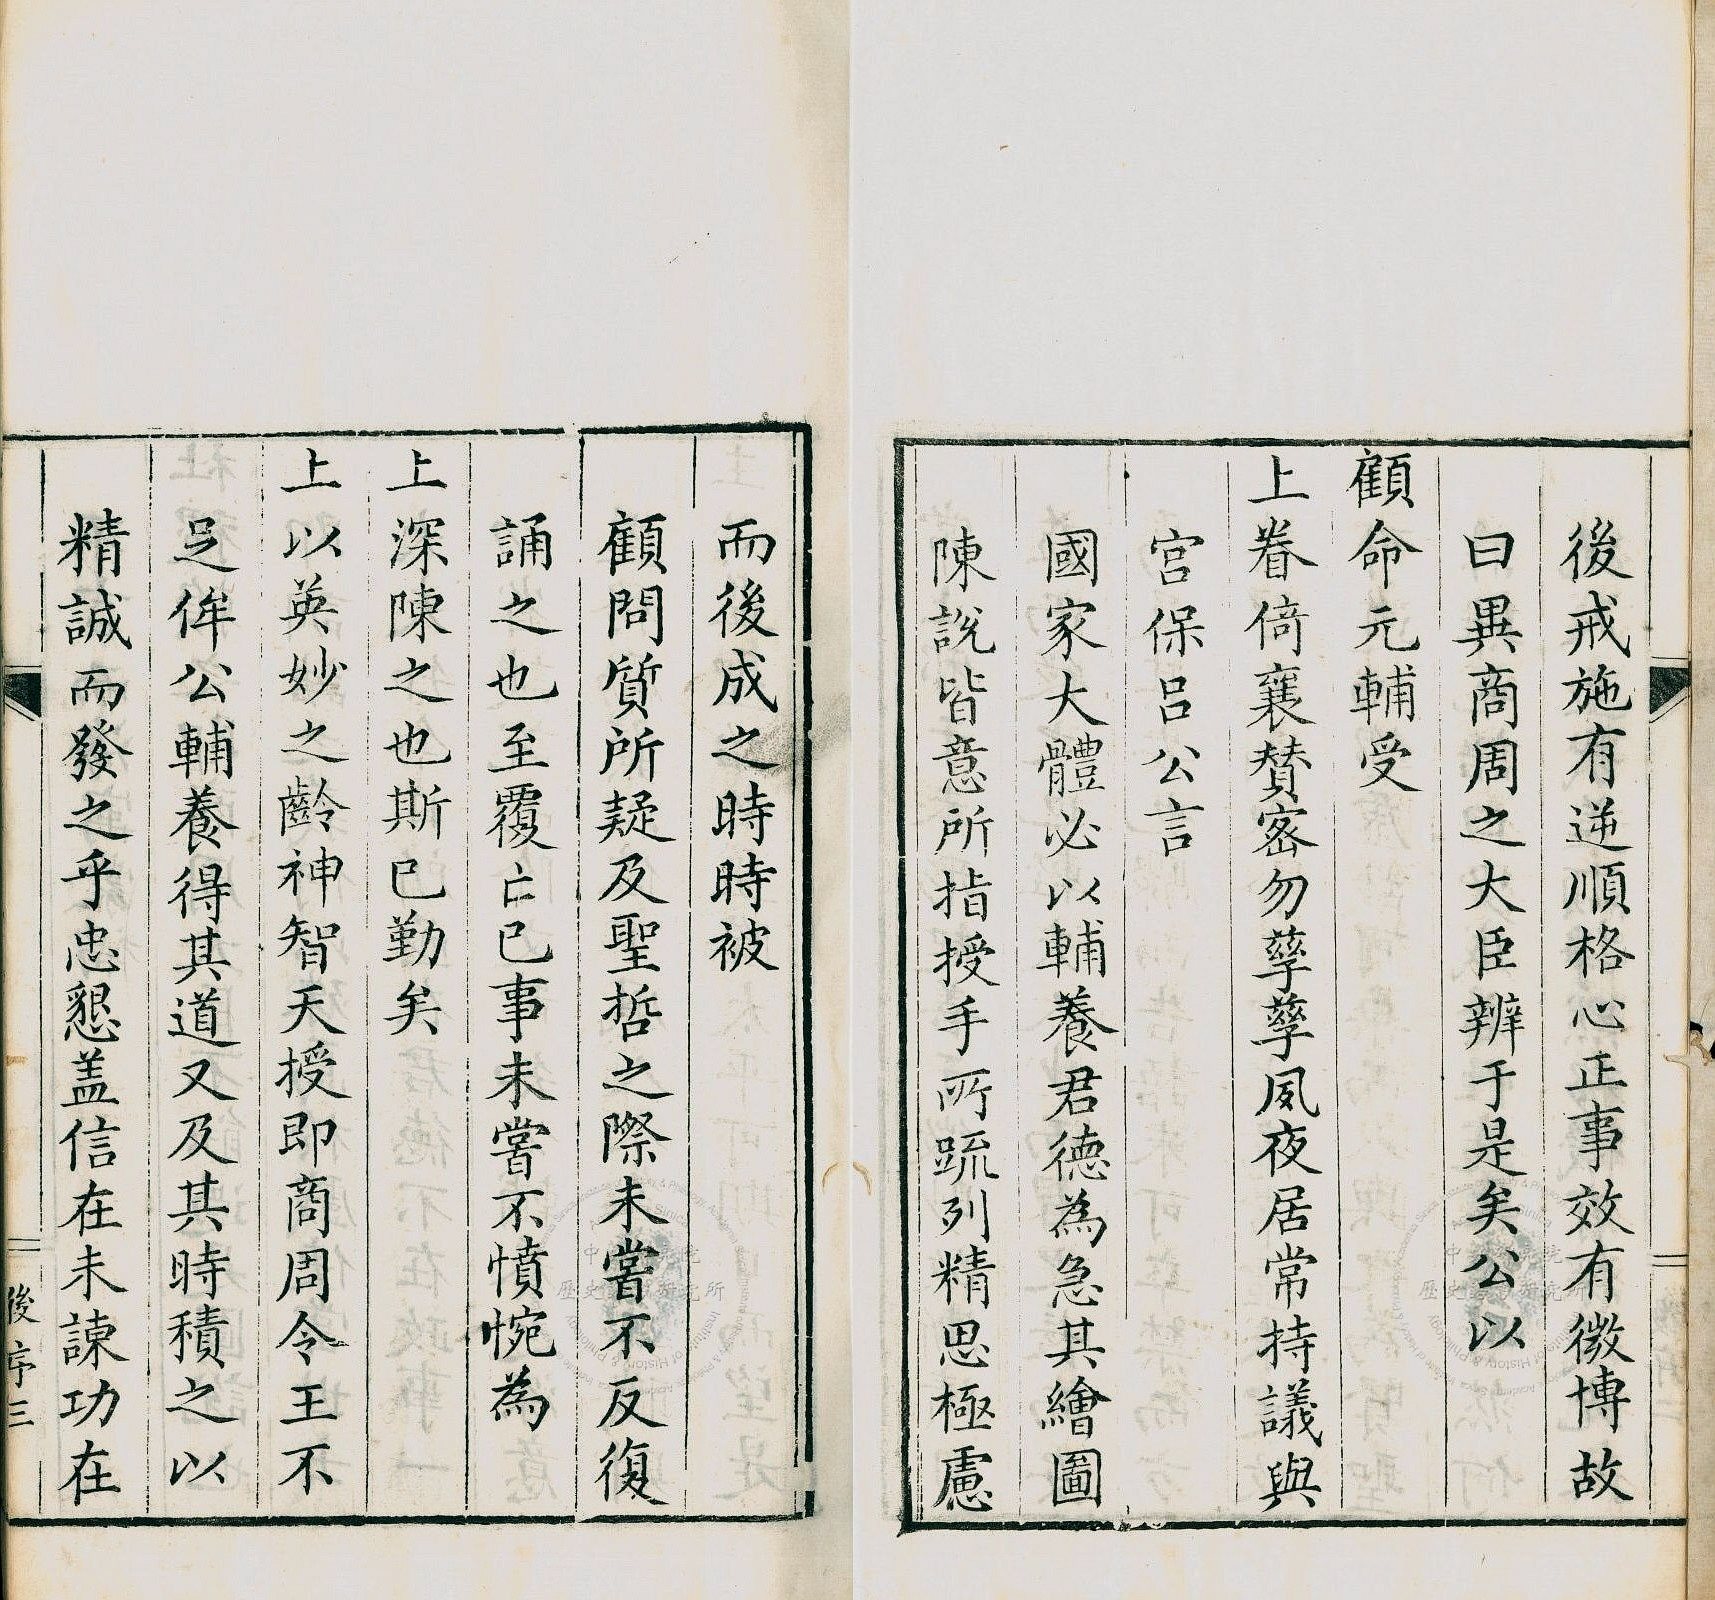 後戒施有逆順格心正事效有微博故
曰異商周之大臣辨于是矣公以
顧命元輔受
上眷倚襄賛宻勿孳孳夙夜居常持議與
宫保吕公言
國家大體必以輔養君德為急其繪圖
陳說皆意所指授手所疏列精思極慮
而後成之時時被
顧問質所疑及聖哲之際未嘗不反復
誦之也至覆亡已事未嘗不憤惋為
上深陳之也斯已勤矣
上以英妙之齡神智天授即商周令王不
足侔公輔養得其道又及其時積之以
精誠而發之乎忠懇盖信在未諫功在
後序三
中央研究院
歷史語言研究所